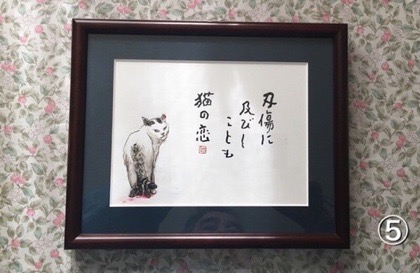 刃傷に
及びし
ことも
猫の恋
⑤